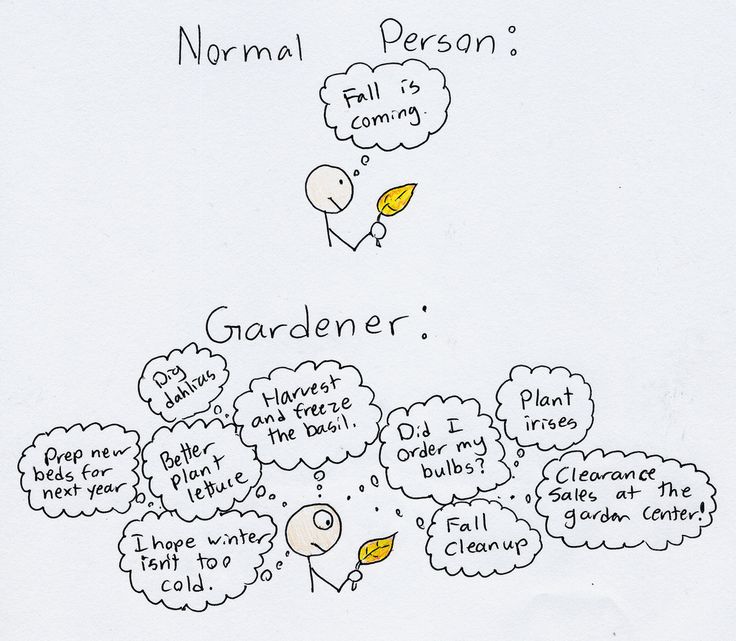 Normal Person:
Fall is
coming.
Gardener:
Dig
dahlias
Harvest
and freeze
the basil.
Plant
irises
Prep new
beds for
next year
Better
plant
lettuce
Did I
order my
bulbs?
Clearance
Sales at the
garden center!
I hope winter
isn't too
cold.
Fall
Cleanup